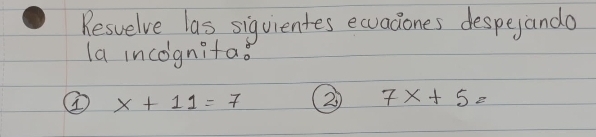 Resuelve las siguientes ecuaciones despejando
la incógnita:
① x + 11 = 7 ② 7x + 5 =